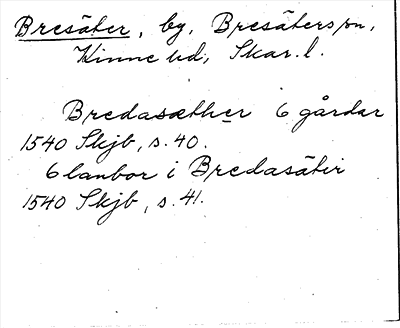 Bresäter, by, Bresäters sn,
Kinne hd, Skar. l.
Bredasæther 6 gårdar
1540 Skjb, s. 40.
6 lanbor i Bredasätir
1540 Skjb, s. 41.